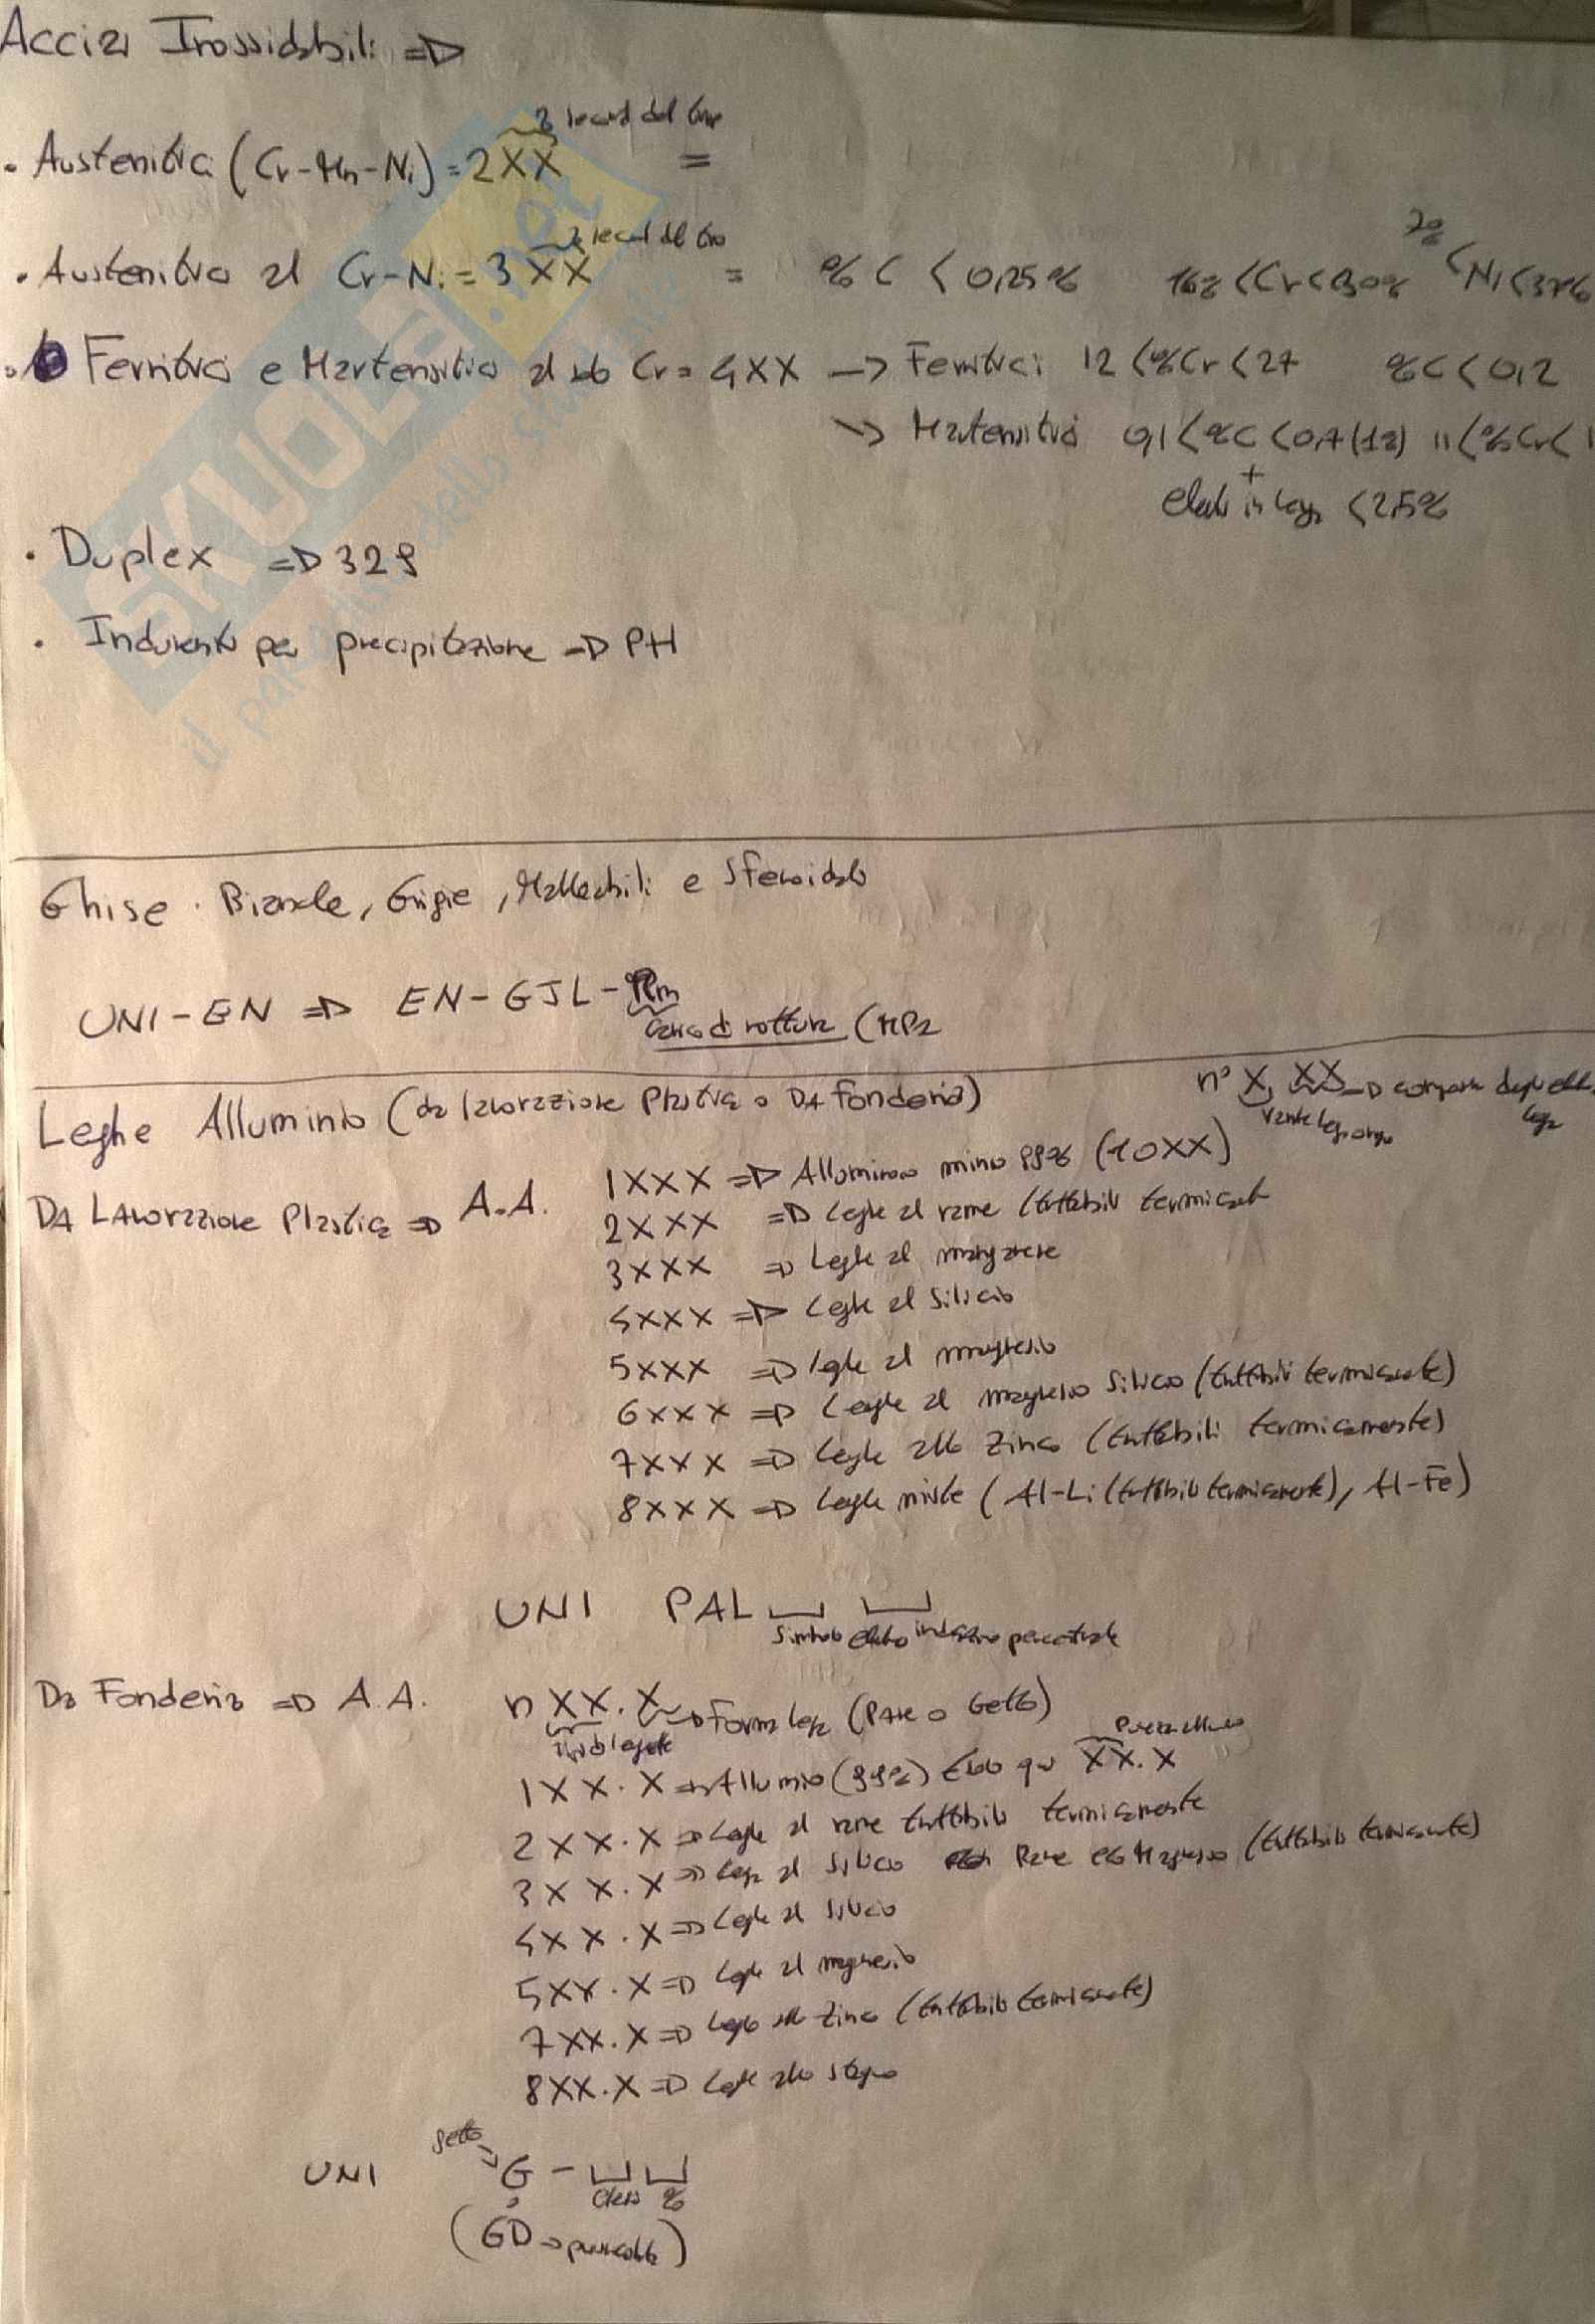 Acciai Inossidabili =D
2 second del Gru
. Austenitici (Cr-Mn-Ni) = 2XX =
. Austenitici al Cr-Ni = 3XX = % C < 0,25% 16% < Cr < 30% <Ni<37%
. Ferritici e Martensitici al Cr = 4XX -> Ferritici 12 <%Cr <27 %C < 0,2
-> Martensitici 0,1 <%C <0,7(1,2) 11 <%Cr<1
+
in lega <2,5%
. Duplex =D 329
. Indurenti per precipitazione =D PH
SKUOLA.net
il paradiso dello studente
Ghise . Bianche, Grigie, Malleabili e Sferoidale
UNI-EN =D EN-GJL-Rm
carico di rottura (MPa
Leghe Alluminio (da lavorazione Plastica o DA fonderia)
n° X, XX =D degli
Variante lega
lega
DA LAvorazione Plastica =D A.A.
1XXX =D Alluminio minimo 99% (10XX)
2XXX =D Leghe al rame (trattabili termicamente
3XXX =D Leghe al manganese
4XXX =D Leghe al Silicio
5XXX =D leghe al magnesio
6XXX =D Leghe al magnesio Silicio (trattabili termicamente)
7XXX =D Leghe allo Zinco (trattabili termicamente)
8XXX =D Leghe miste (Al-Li (trattabili termicamente), Al-Fe)
UNI PAL
simbolo indicazione percentuale
Da Fonderia =D A.A. n XX.X =D Forma lega (PAne o Getto)
1XX.X => Alluminio (99%) XX.X
2XX.X => Leghe al rame trattabili termicamente
3XX.X => Lega al Silicio Rame e/o Magnesio (trattabili termicamente)
4XX.X => Leghe al silicio
5XX.X =D Leghe al magnesio
7XX.X =D Leghe allo Zinco (trattabili termicamente)
8XX.X =D Leghe allo stagno
getto
UNI G -
%
(GD -> pressocolata)